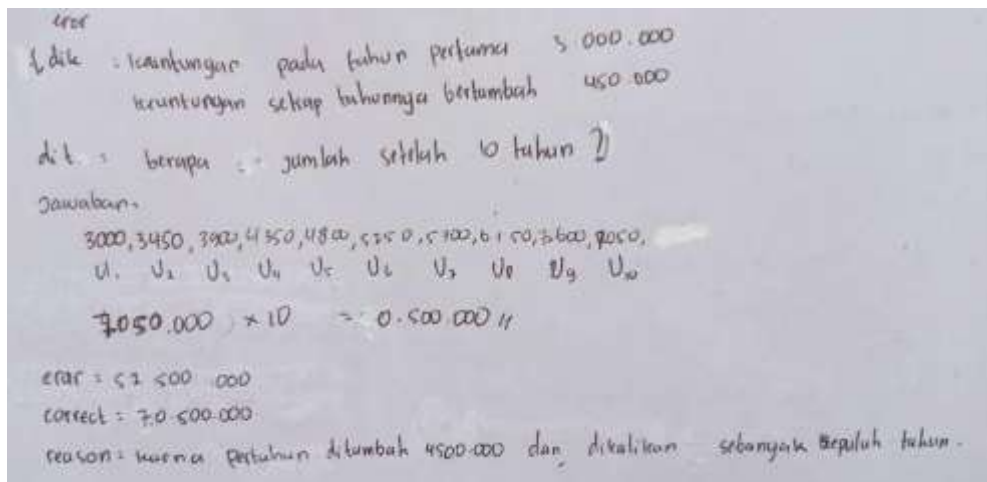 eror
1. dik : keuntungan pada tahun pertama 3 000.000
keuntungan setiap tahunnya bertambah 450 000
dit : berapa : jumlah setelah 10 tahun ?
Jawaban.
3000, 3450, 3900, 4350, 4800, 5250, 5700, 6150, 3600, 7050,
U₁ U₂ U₃ U₄ U₅ U₆ U₇ U₈ U₉ U₁₀
7050.000 × 10 = 0.500.000 //
erar = 52 500 000
correct = 70.500.000
reason = karna pertahun ditambah 4500.000 dan dikalikan sebanyak sepuluh tahun.